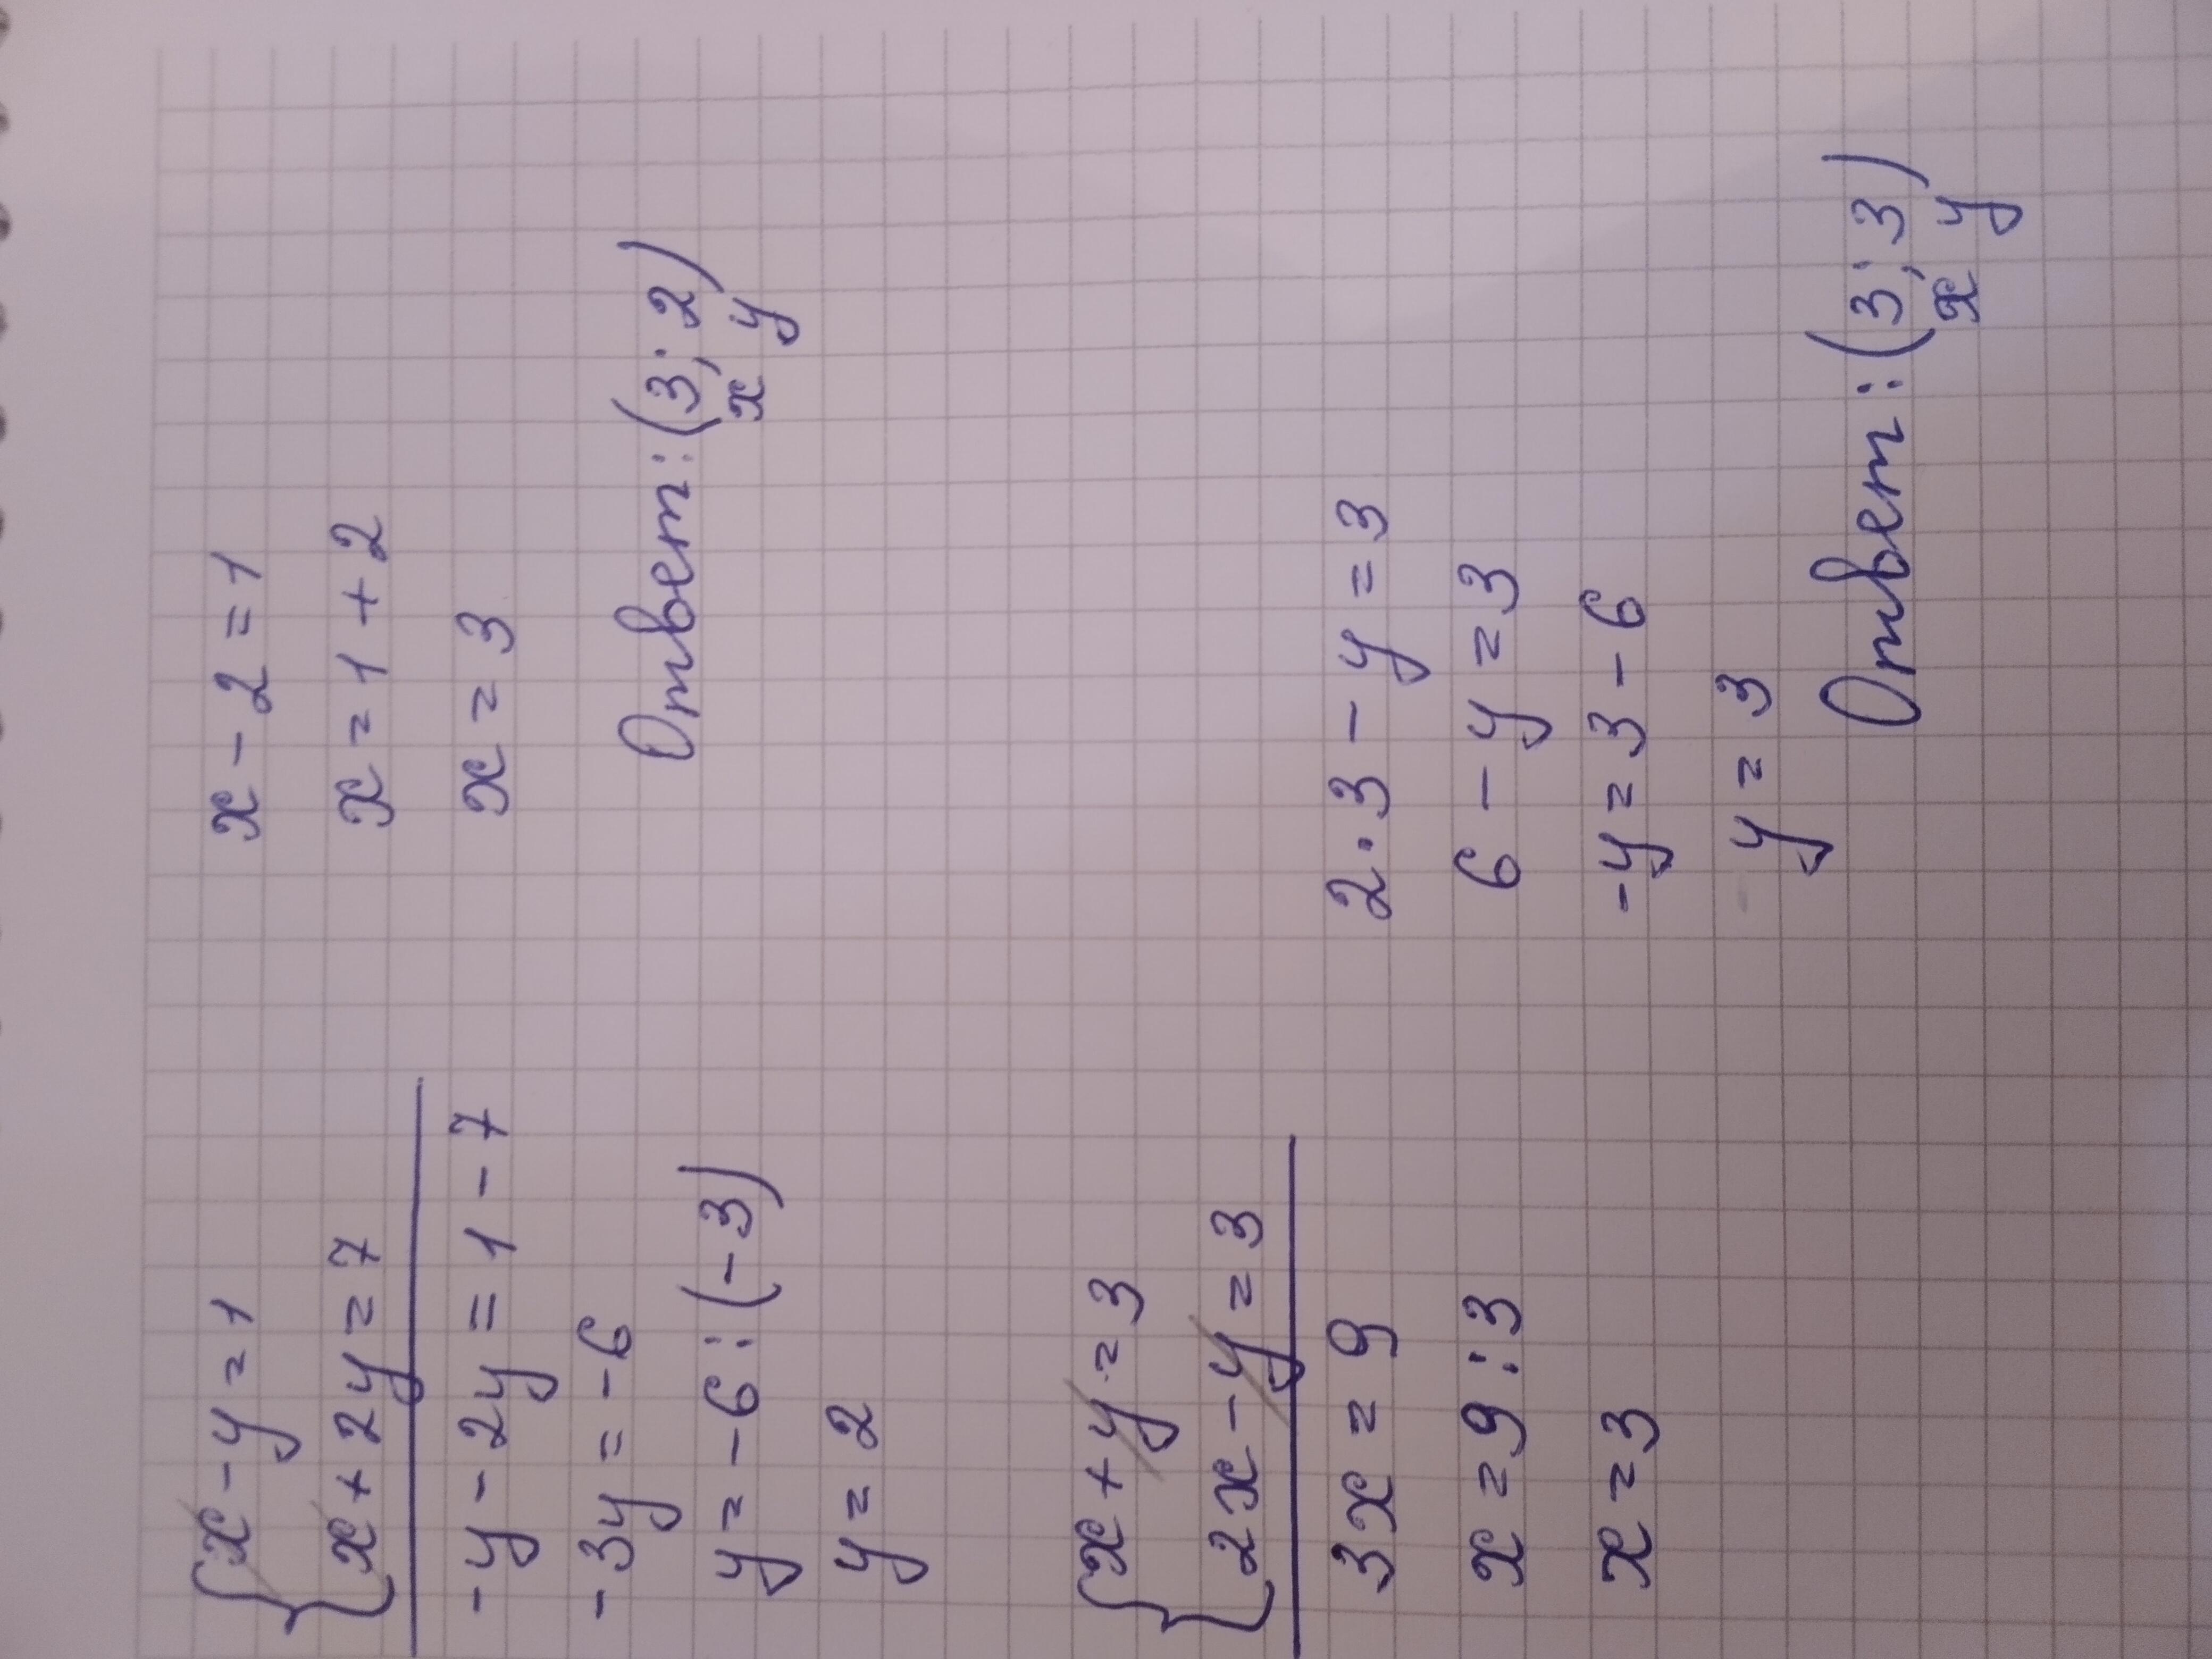 x - y = 1
x + 2y = 7
-y - 2y = 1 - 7
-3y = -6
y = -6 : (-3)
y = 2
x - 2 = 1
x = 1 + 2
x = 3
Ответ: (3; 2)
x y
x + y = 3
2x - y = 3
3x = 9
x = 9 : 3
x = 3
2 · 3 - y = 3
6 - y = 3
-y = 3 - 6
y = 3
Ответ: (3; 3)
x y